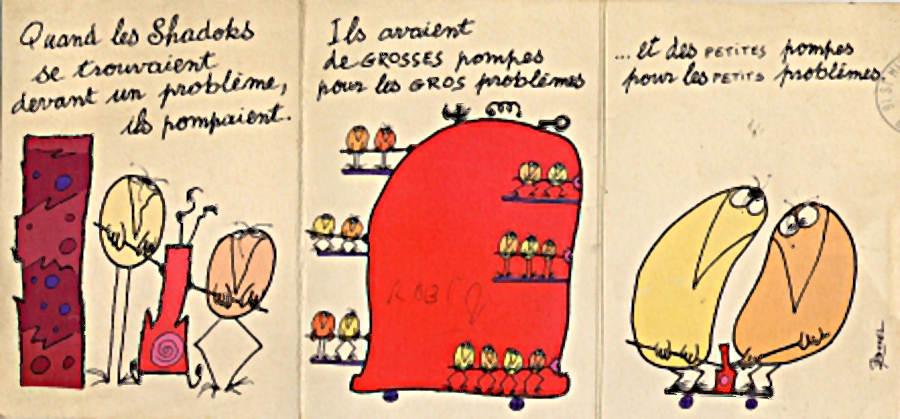 Quand les Shadoks
se trouvaient
devant un problème,
ils pompaient.
Ils avaient
de GROSSES pompes
pour les GROS problèmes
... et des PETITES pompes
pour les PETITS problèmes.